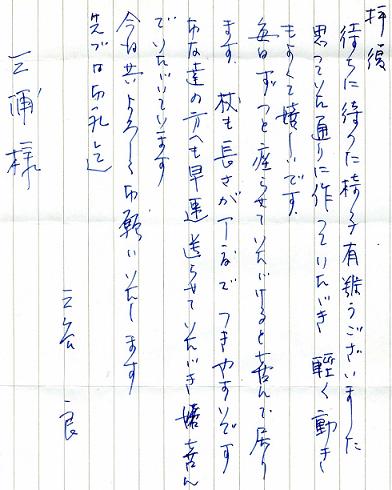 拝復
待ちに待った椅子有難うございました
思っていた通りに作っていただき 軽く動き
もよくて嬉しいです。
毎日ずっと座らせていただけると喜んで居り
ます。杖も長さが丁度で つきやすいです
お友達の方へも早速送らせていただき 嬉喜ん
でいただいています
今后共よろしくお願いいたします
先ずは御礼まで
良
三浦様